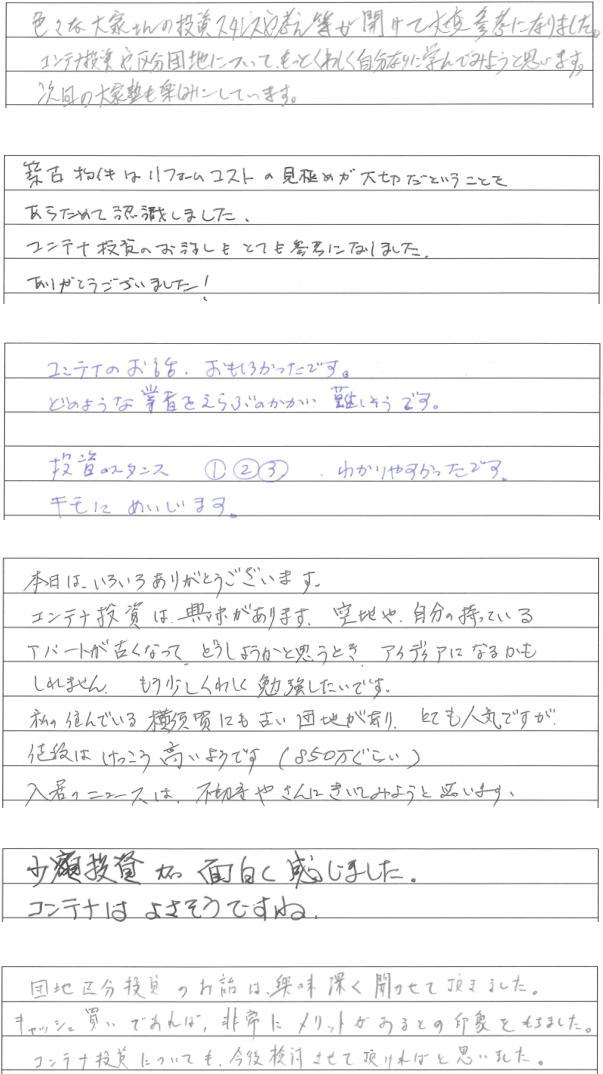 色々な大家さんの投資スタンスや考え等が聞けて大変参考になりました。
コンテナ投資や区分団地について、もっとくわしく自分なりに学んでみようと思います。
次回の大家塾も楽しみにしています。
築古物件はリフォームコストの見極めが大切だということを
あらためて認識しました、
コンテナ投資のお話しもとても参考になりました、
ありがとうございました！
コンテナのお話、おもしろかったです。
どのような業者をえらぶのかがい難しそうです。
投資のスタンス ①②③ 、わかりやすかったです。
キモにめいじます。
本日は、いろいろありがとうございます、
コンテナ投資は、興味があります、空地や、自分の持っている
アパートが古くなって、どうしようかと思うとき、アイディアになるかも
しれません、もう少しくわしく勉強したいです、
私の住んでいる横須賀にも古い団地があり、とても人気ですが、
値段はけっこう高いようです（850万ぐらい）
入居のニーズは、不動産やさんにきいてみようと思います、
少額投資が面白く感じました。
コンテナはよさそうですね、
団地区分投資のお話は、興味深く聞かせて頂きました。
キャッシュ買いであれば、非常にメリットがあるとの印象をもちました。
コンテナ投資についても、今後検討させて頂ければと思いました。